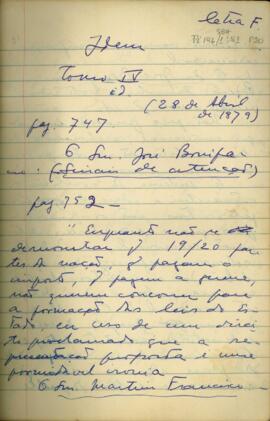 letra F.
Idem
Tomo IV
id.
(28 de Abril
de 1879)
pag. 747
O Snr. José Bonifa-
cio: (Signaes de attenção)
pag 752 –
"Enquanto não se
demonstrar q 19/20 par-
tes da nação, q pagam o
imposto, q pagam a guerra,
não querem concorrer para
a formação das leis do Es-
tado, em uso de um direi-
to proclamado que a re-
presentação proposta é uma
formidavel ironia
O Snr. Martim Francisco –